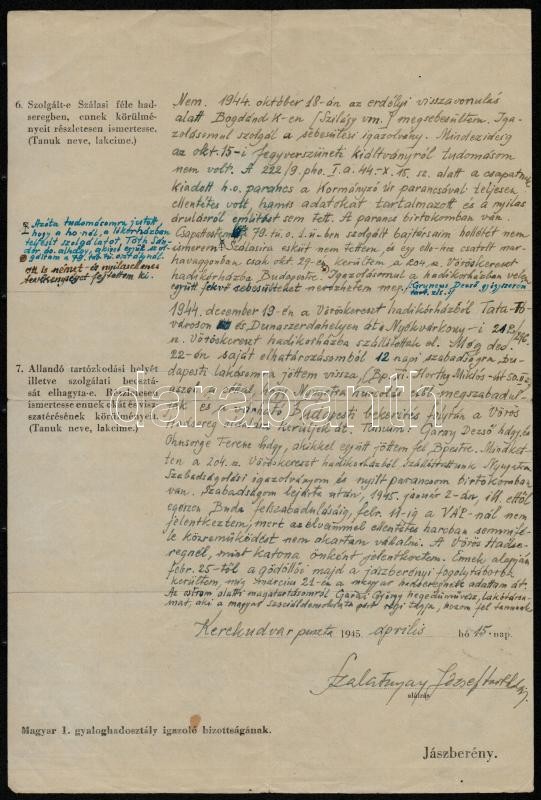 6. Szolgált-e Szálasi féle had-
seregben, ennek körülmé-
nyeit részletesen ismertesse.
(Tanuk neve, lakcime.)
Nem. 1944. október 18-án az erdélyi visszavonulás
alatt Bogdánd K-en /Szilágy vm./ megsebesültem. Iga-
zolásomul szolgál a sebesülési igazolvány. Mindezideig
az okt. 15-i fegyverszüneti kiáltványról tudomásom
nem volt. A 222/9. pho. I.a. 44. X. 15. sz. alatt a csapatnak
kiadott h.o. parancs a Kormányzó úr parancsával teljesen
ellentétes volt, hamis adatokat tartalmazott és a nyilas
árulásról említést sem tett. A parancs birtokomban van.
szolgált bajtársaim hollétét nem
ismerem. Szálasira esküt nem tettem, és egy elle-hez csatolt mar-
havagonban csak okt. 29-én kerültem a 204. sz. Vöröskereszt
hadikórházba Budapestre. Igazolásomul a hadikórházban velem
együtt fekvő sebesülteket nevezhetem meg.
Azóta tudomásomra jutott,
hogy a
teljesít szolgálatot, Tóth
7. Állandó tartózkodási helyét
illetve szolgálati beosztá-
sát elhagyta-e. Részletesen
ismertesse ennek okát és visz-
szatérésének körülményeit.
(Tanuk neve, lakcime.)
1944. december 19-én a Vöröskereszt hadikórházból Tata-To-
városon és Dunaszerdahelyen át a Nyékvárkony-i
sz. Vöröskereszt hadikórházba szállítottak el. Még dec.
22-én saját elhatározásomból 12 napi szabadságra Bu-
dapesti lakásomra jöttem vissza /Bp. Horthy Miklós-út
azzal a céllal, hogy Nyugatra hurcolás elől megszabadul-
jak és a várható Budapesti bekerítés folytán a Vörös
Hadsereg kezébe kerüljek át. Tanuim: Garay Dezső hdgy. és
Ohnsorge Ferenc hdgy, akikkel együtt jöttem fel Bpestre. Mindket-
ten a 204. sz. Vöröskereszt hadikórházból szállítottunk Nyugatra.
Szabadságolási igazolványom és nyílt parancsom birtokomban
van. Szabadságom lejárta után, 1945. január 2-án, ill. ettől
egészen Buda felszabadulásáig, febr. 11-ig a VÁP-nál nem
jelentkeztem, mert az elveimmel ellentétes harcban semmifé-
le közreműködést nem akartam vállalni. A Vörös Hadse-
regnél, mint katona önként jelentkeztem. Ennek alapján
febr. 25-től a gödöllői majd a jászberényi fogolytáborba
kerültem, míg március 21-én a magyar hadseregnek adattam át.
Az ostrom alatti magatartásomról
mat, aki a magyar szociáldemokrata párt régi tagja, hozom fel tanunak
Kerekudvar puszta 1945. április hó 15. nap.
Szalatnyay József
aláirás
Magyar 1. gyaloghadosztály igazoló bizottságának.
Jászberény.
darabanth